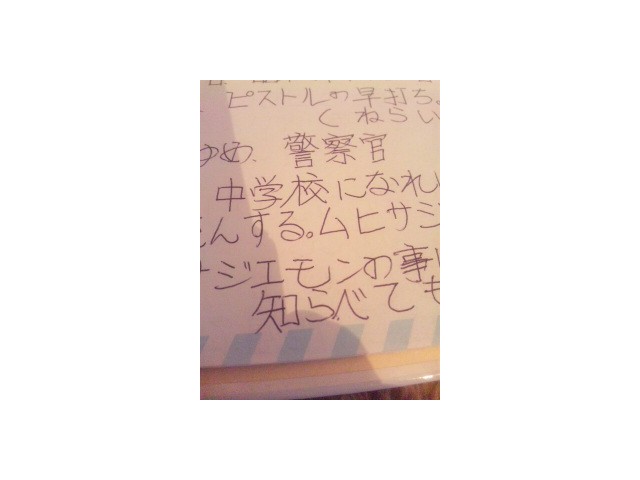 ピストルの早打ち。
くねらい
ゆめ、警察官
中学校になれ
んする。ムヒサジ
ジエモンの事
知らべても